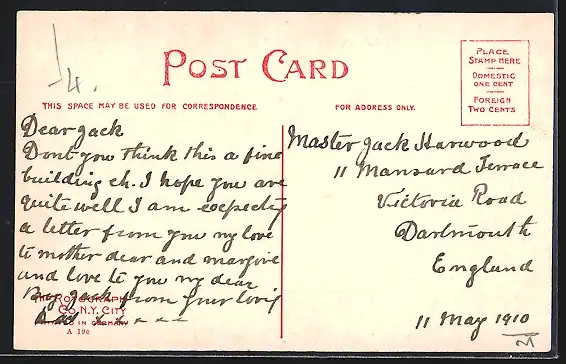 14.
POST CARD
THIS SPACE MAY BE USED FOR CORRESPONDENCE.
FOR ADDRESS ONLY.
PLACE
STAMP HERE
DOMESTIC
ONE CENT
FOREIGN
TWO CENTS
Dear Jack
Dont you think this a fine
building eh. I hope you are
quite well I am expecting
a letter from you my love
to mother dear and margire
and love to you my dear
Boy Jack from your lovig
Dad x x x x x
THE ROTOGRAPH
CO. N.Y. CITY
IN GERMANY
A 19c
Master Jack Harwood
11 Mansard Terrace
Victoria Road
Dartmouth
England
11 May 1910